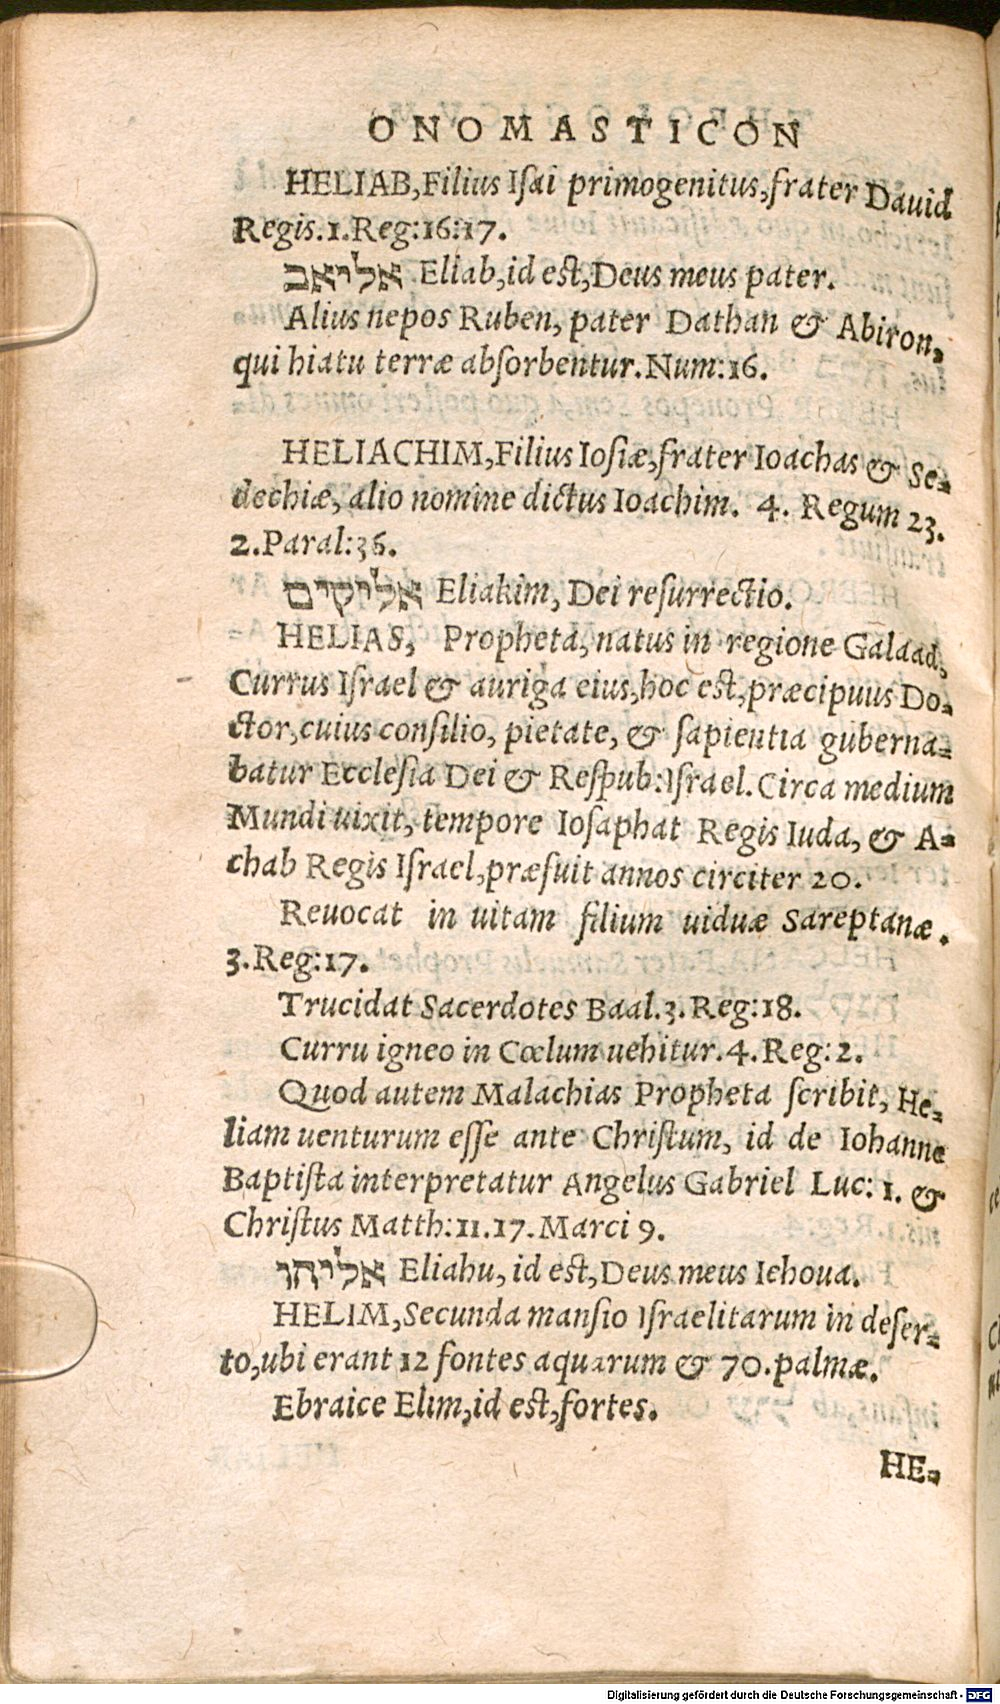 ONOMASTICON
HELIAB, Filius Iſai primogenitus, frater Dauid
Regis. 1. Reg: 16. 17.
אליאב Eliab, id est, Deus meus pater.
Alius nepos Ruben, pater Dathan & Abiron,
qui hiatu terræ abſorbentur. Num: 16.
HELIACHIM, Filius Ioſiæ, frater Ioachas & Se-
dechiæ, alio nomine dictus Ioachim. 4. Regum 23.
2. Paral: 36.
אליקים Eliakim, Dei reſurrectio.
HELIAS, Propheta, natus in regione Galaad,
Currus Iſrael & auriga eius, hoc est, præcipuus Do-
ctor, cuius conſilio, pietate, & ſapientia guberna-
batur Eccleſia Dei & Reſpub: Iſrael. Circa medium
Mundi uixit, tempore Ioſaphat Regis Iuda, & A-
chab Regis Iſrael, præfuit annos circiter 20.
Reuocat in uitam filium uiduæ Sareptanæ.
3. Reg: 17.
Trucidat Sacerdotes Baal. 3. Reg: 18.
Curru igneo in Cœlum uehitur. 4. Reg: 2.
Quod autem Malachias Propheta ſcribit, He-
liam uenturum eſſe ante Chriſtum, id de Iohanne
Baptiſta interpretatur Angelus Gabriel Luc: 1. &
Chriſtus Matth: 11. 17. Marci 9.
אליהו Eliahu, id est, Deus meus Iehoua.
HELIM, Secunda manſio Iſraelitarum in deſer-
to, ubi erant 12 fontes aquarum & 70. palmæ.
Ebraice Elim, id est, fortes.
HE-
Digitalisierung gefördert durch die Deutsche Forschungsgemeinschaft - DFG